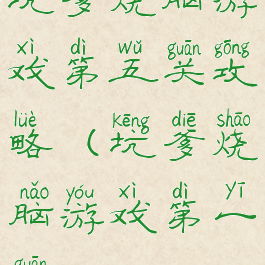 坑爹烧脑游
xì dì wǔ guān gōng
戏第五关攻
lüè kēng diē shāo
略（坑爹烧
nǎo yóu xì dì yī
脑游戏第一
guān